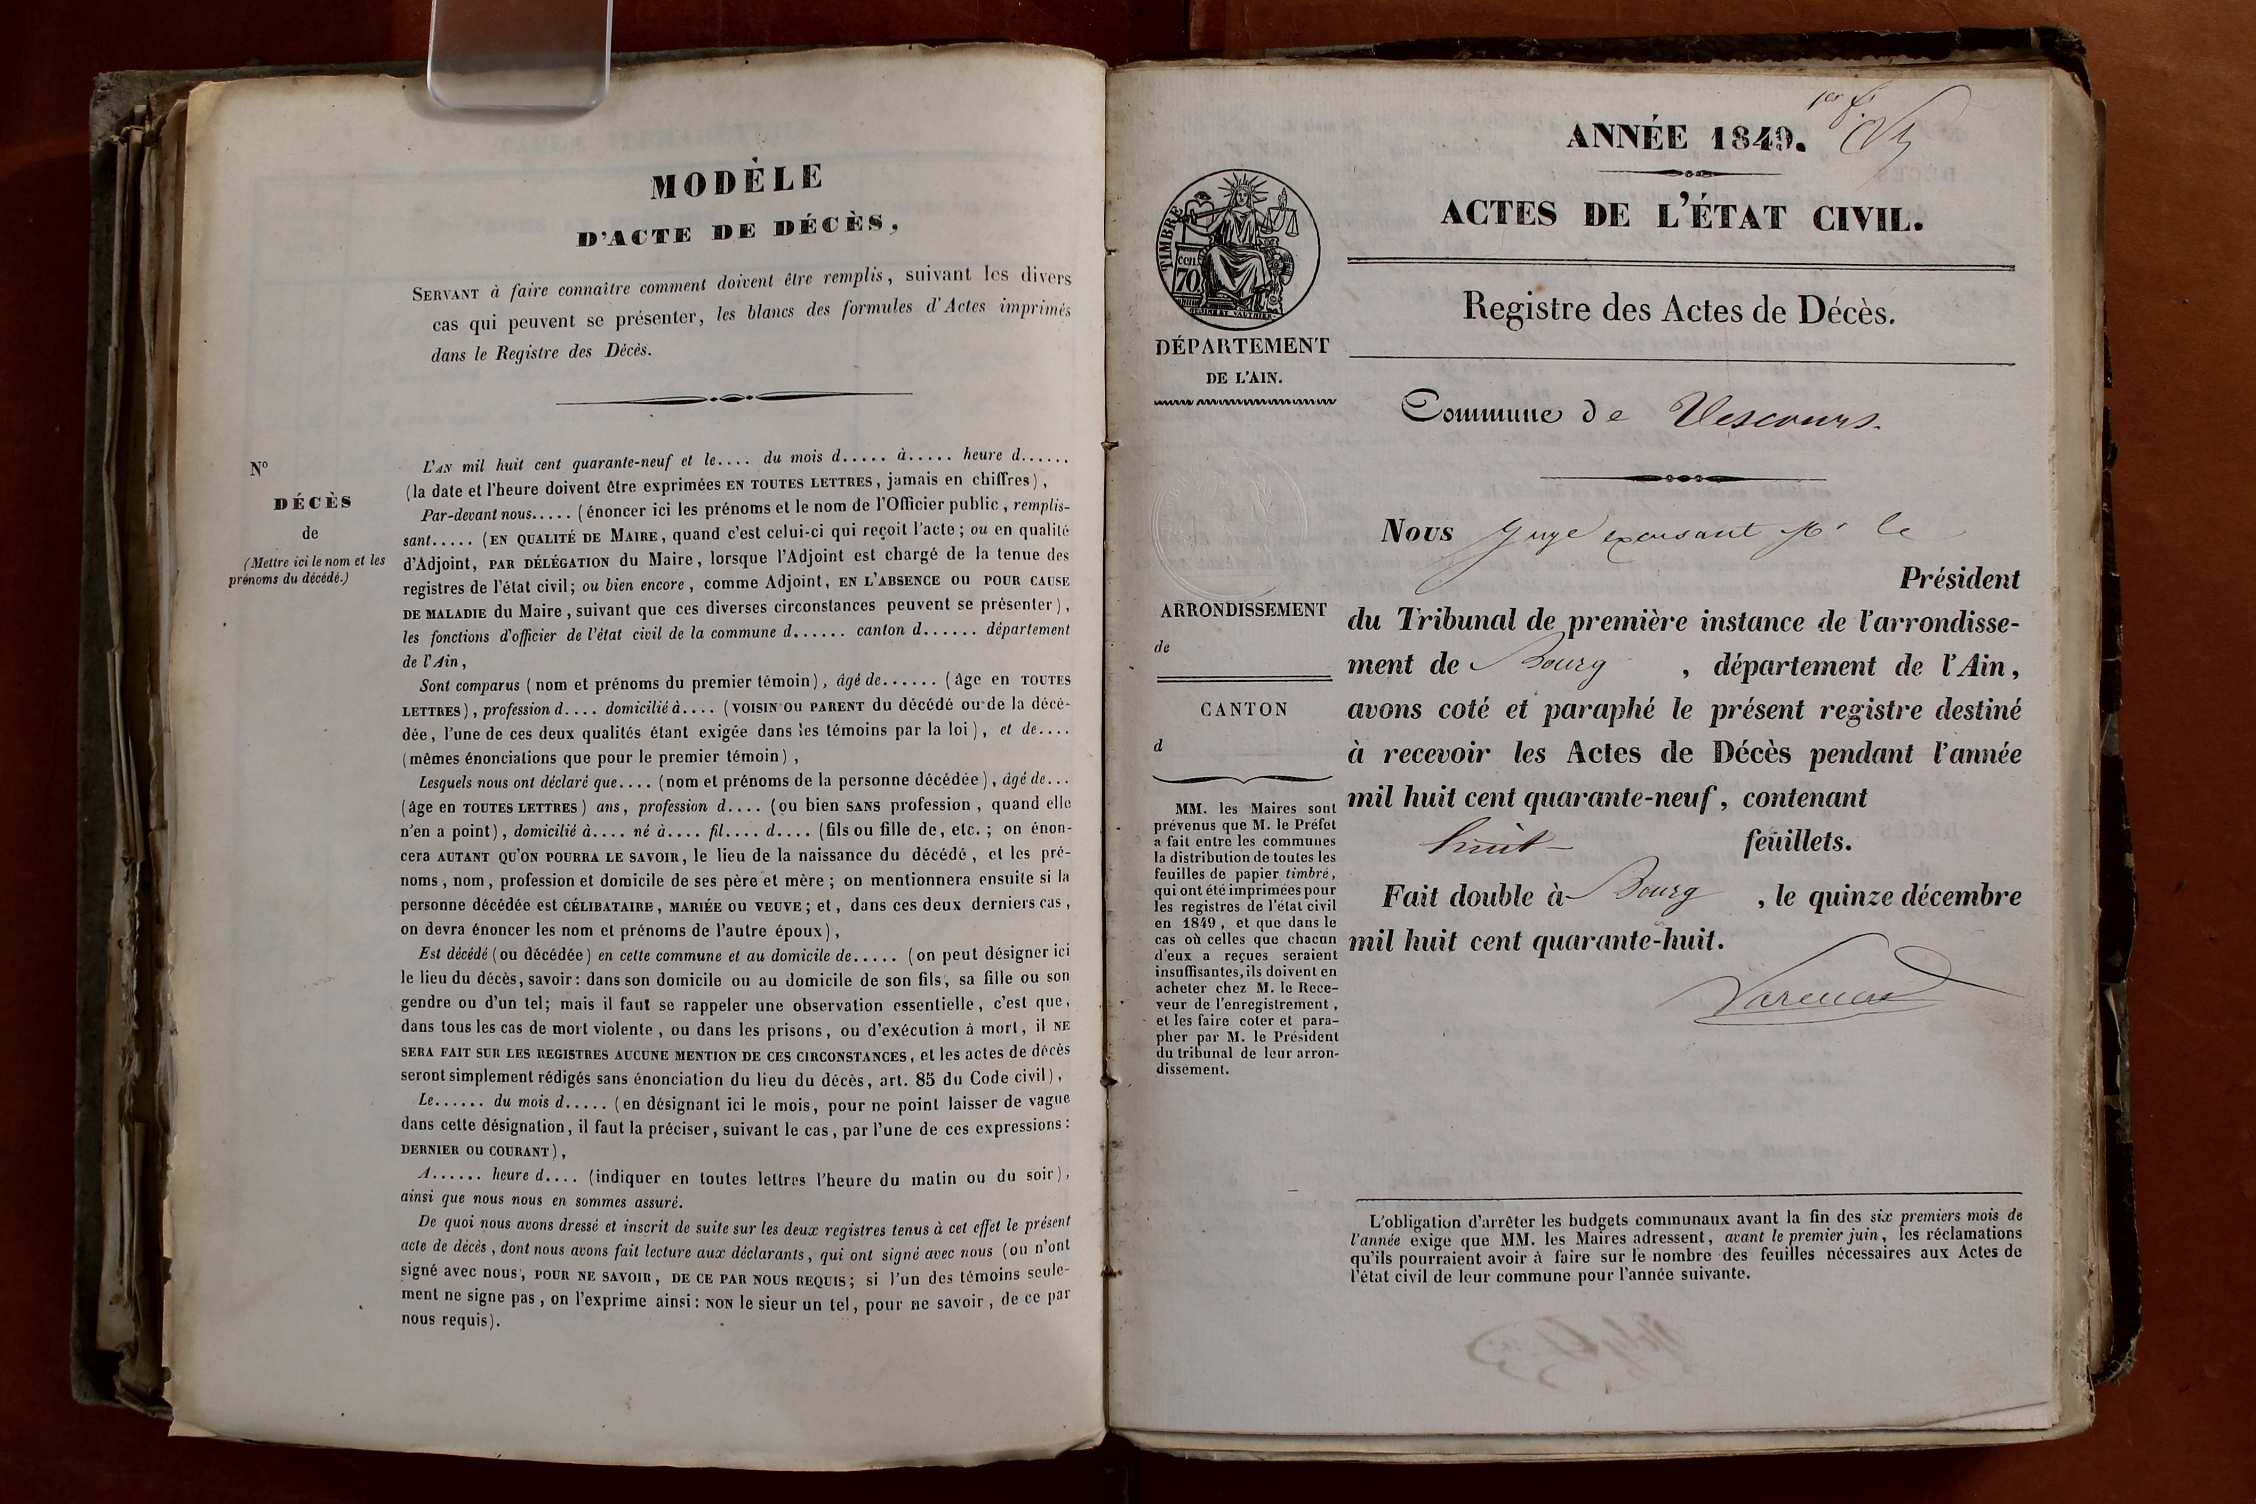 MODÈLE
D'ACTE DE DÉCÈS,
SERVANT à faire connaître comment doivent être remplis, suivant les divers
cas qui peuvent se présenter, les blancs des formules d'Actes imprimés
dans le Registre des Décès.
N°
DÉCÈS
de
(Mettre ici le nom et les
prénoms du décédé.)
L'AN mil huit cent quarante-neuf et le.... du mois d..... à..... heure d......
(la date et l'heure doivent être exprimées EN TOUTES LETTRES, jamais en chiffres),
Par-devant nous..... (énoncer ici les prénoms et le nom de l'Officier public, remplis-
sant..... (EN QUALITÉ DE MAIRE, quand c'est celui-ci qui reçoit l'acte; ou en qualité
d'Adjoint, PAR DÉLÉGATION du Maire, lorsque l'Adjoint est chargé de la tenue des
registres de l'état civil; ou bien encore, comme Adjoint, EN L'ABSENCE OU POUR CAUSE
DE MALADIE du Maire, suivant que ces diverses circonstances peuvent se présenter),
les fonctions d'officier de l'état civil de la commune d...... canton d...... département
de l'Ain,
Sont comparus (nom et prénoms du premier témoin), âgé de...... (âge en TOUTES
LETTRES), profession d.... domicilié à.... (VOISIN OU PARENT du décédé ou de la décé-
dée, l'une de ces deux qualités étant exigée dans les témoins par la loi), et de....
(mêmes énonciations que pour le premier témoin),
Lesquels nous ont déclaré que.... (nom et prénoms de la personne décédée), âgé de...
(âge en TOUTES LETTRES) ans, profession d.... (ou bien SANS profession, quand elle
n'en a point), domicilié à.... né à.... fil.... d.... (fils ou fille de, etc.; on énon-
cera AUTANT QU'ON POURRA LE SAVOIR, le lieu de la naissance du décédé, et les pré-
noms, nom, profession et domicile de ses père et mère; on mentionnera ensuite si la
personne décédée est CÉLIBATAIRE, MARIÉE OU VEUVE; et, dans ces deux derniers cas,
on devra énoncer les nom et prénoms de l'autre époux),
Est décédé (ou décédée) en cette commune et au domicile de..... (on peut désigner ici
le lieu du décès, savoir: dans son domicile ou au domicile de son fils, sa fille ou son
gendre ou d'un tel; mais il faut se rappeler une observation essentielle, c'est que,
dans tous les cas de mort violente, ou dans les prisons, ou d'exécution à mort, il NE
SERA FAIT SUR LES REGISTRES AUCUNE MENTION DE CES CIRCONSTANCES, et les actes de décès
seront simplement rédigés sans énonciation du lieu du décès, art. 85 du Code civil),
Le...... du mois d..... (en désignant ici le mois, pour ne point laisser de vague
dans cette désignation, il faut la préciser, suivant le cas, par l'une de ces expressions:
DERNIER OU COURANT),
A...... heure d.... (indiquer en toutes lettres l'heure du matin ou du soir),
ainsi que nous nous en sommes assuré.
De quoi nous avons dressé et inscrit de suite sur les deux registres tenus à cet effet le présent
acte de décès, dont nous avons fait lecture aux déclarants, qui ont signé avec nous (ou n'ont
signé avec nous, POUR NE SAVOIR, DE CE PAR NOUS REQUIS; si l'un des témoins seule-
ment ne signe pas, on l'exprime ainsi: NON le sieur un tel, pour ne savoir, de ce par
nous requis).
ANNÉE 1849.
ACTES DE L'ÉTAT CIVIL.
TIMBRE
cen
70
Registre des Actes de Décès.
DÉPARTEMENT
DE L'AIN.
Commune de Vescours.
Nous Juge excusant Mr le
Président
du Tribunal de première instance de l'arrondisse-
ment de Bourg, département de l'Ain,
avons coté et paraphé le présent registre destiné
à recevoir les Actes de Décès pendant l'année
mil huit cent quarante-neuf, contenant
huit feuillets.
Fait double à Bourg, le quinze décembre
mil huit cent quarante-huit.
ARRONDISSEMENT
de
CANTON
d
MM. les Maires sont
prévenus que M. le Préfet
a fait entre les communes
la distribution de toutes les
feuilles de papier timbré,
qui ont été imprimées pour
les registres de l'état civil
en 1849, et que dans le
cas où celles que chacun
d'eux a reçues seraient
insuffisantes, ils doivent en
acheter chez M. le Rece-
veur de l'enregistrement,
et les faire coter et para-
pher par M. le Président
du tribunal de leur arron-
dissement.
L'obligation d'arrêter les budgets communaux avant la fin des six premiers mois de
l'année exige que MM. les Maires adressent, avant le premier juin, les réclamations
qu'ils pourraient avoir à faire sur le nombre des feuilles nécessaires aux Actes de
l'état civil de leur commune pour l'année suivante.